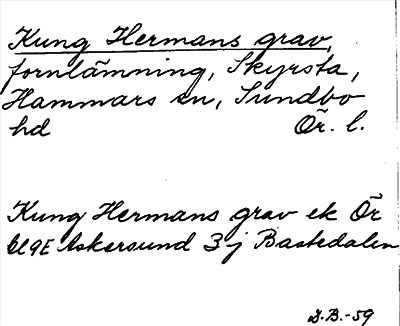 Kung Hermans grav,
fornlämning, Skyrsta,
Hammars sn, Sundbo
hd Ör. l.
Kung Hermans grav ek Ör
bl 9E Askersund 3j Bastedalen
D.B.-59